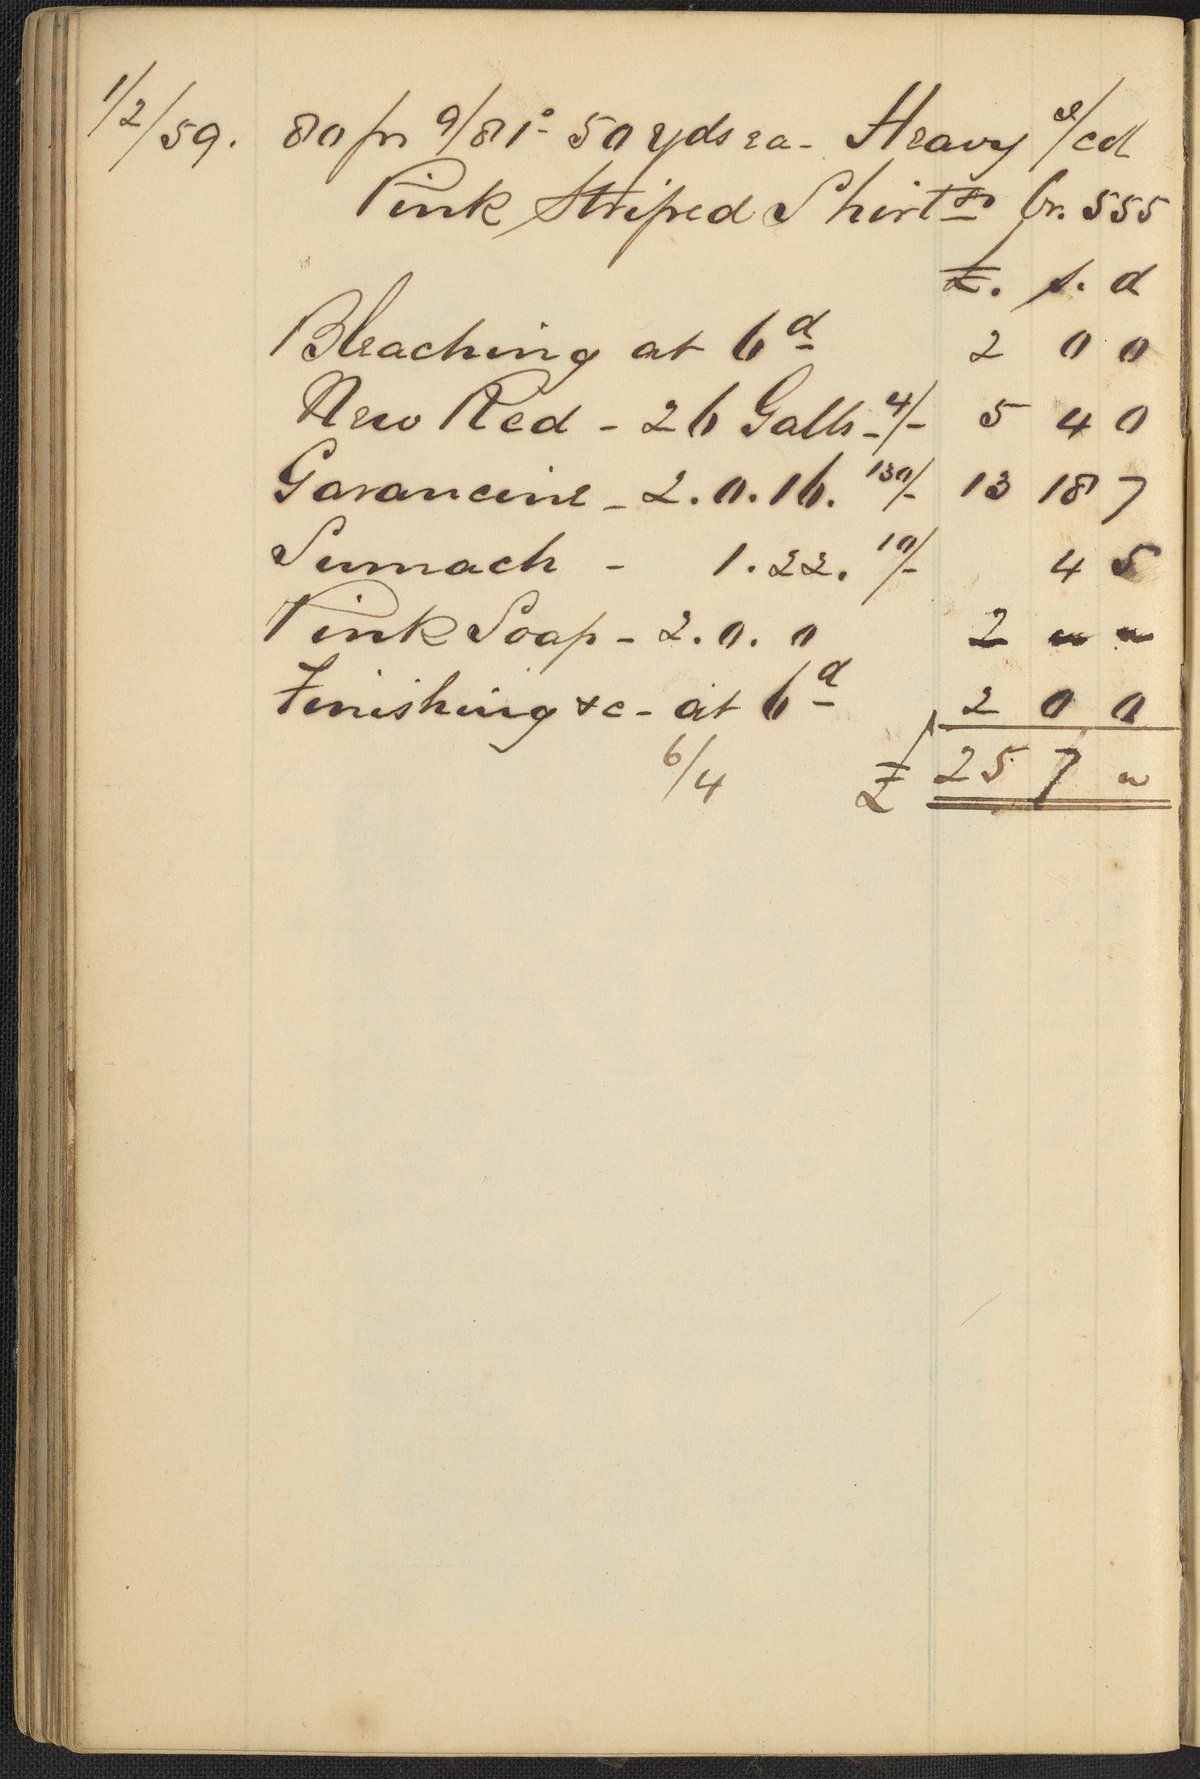 1/2/59. 80 ps 9/81s 50 yds ea - Heavy /cd
Pink Striped Shirtgs Gr. 555
£. s. d
Bleaching at 6d 2 0 0
New Red - 26 Galls - 4/- 5 4 0
Garancine - 2.0.16. 130/- 13 18 7
Sumach - 1.22. 10/- 4 5
Pink Soap - 2.0.0 2 " "
Finishing &c - at 6d 2 0 0
6/4 £ 25 7 "